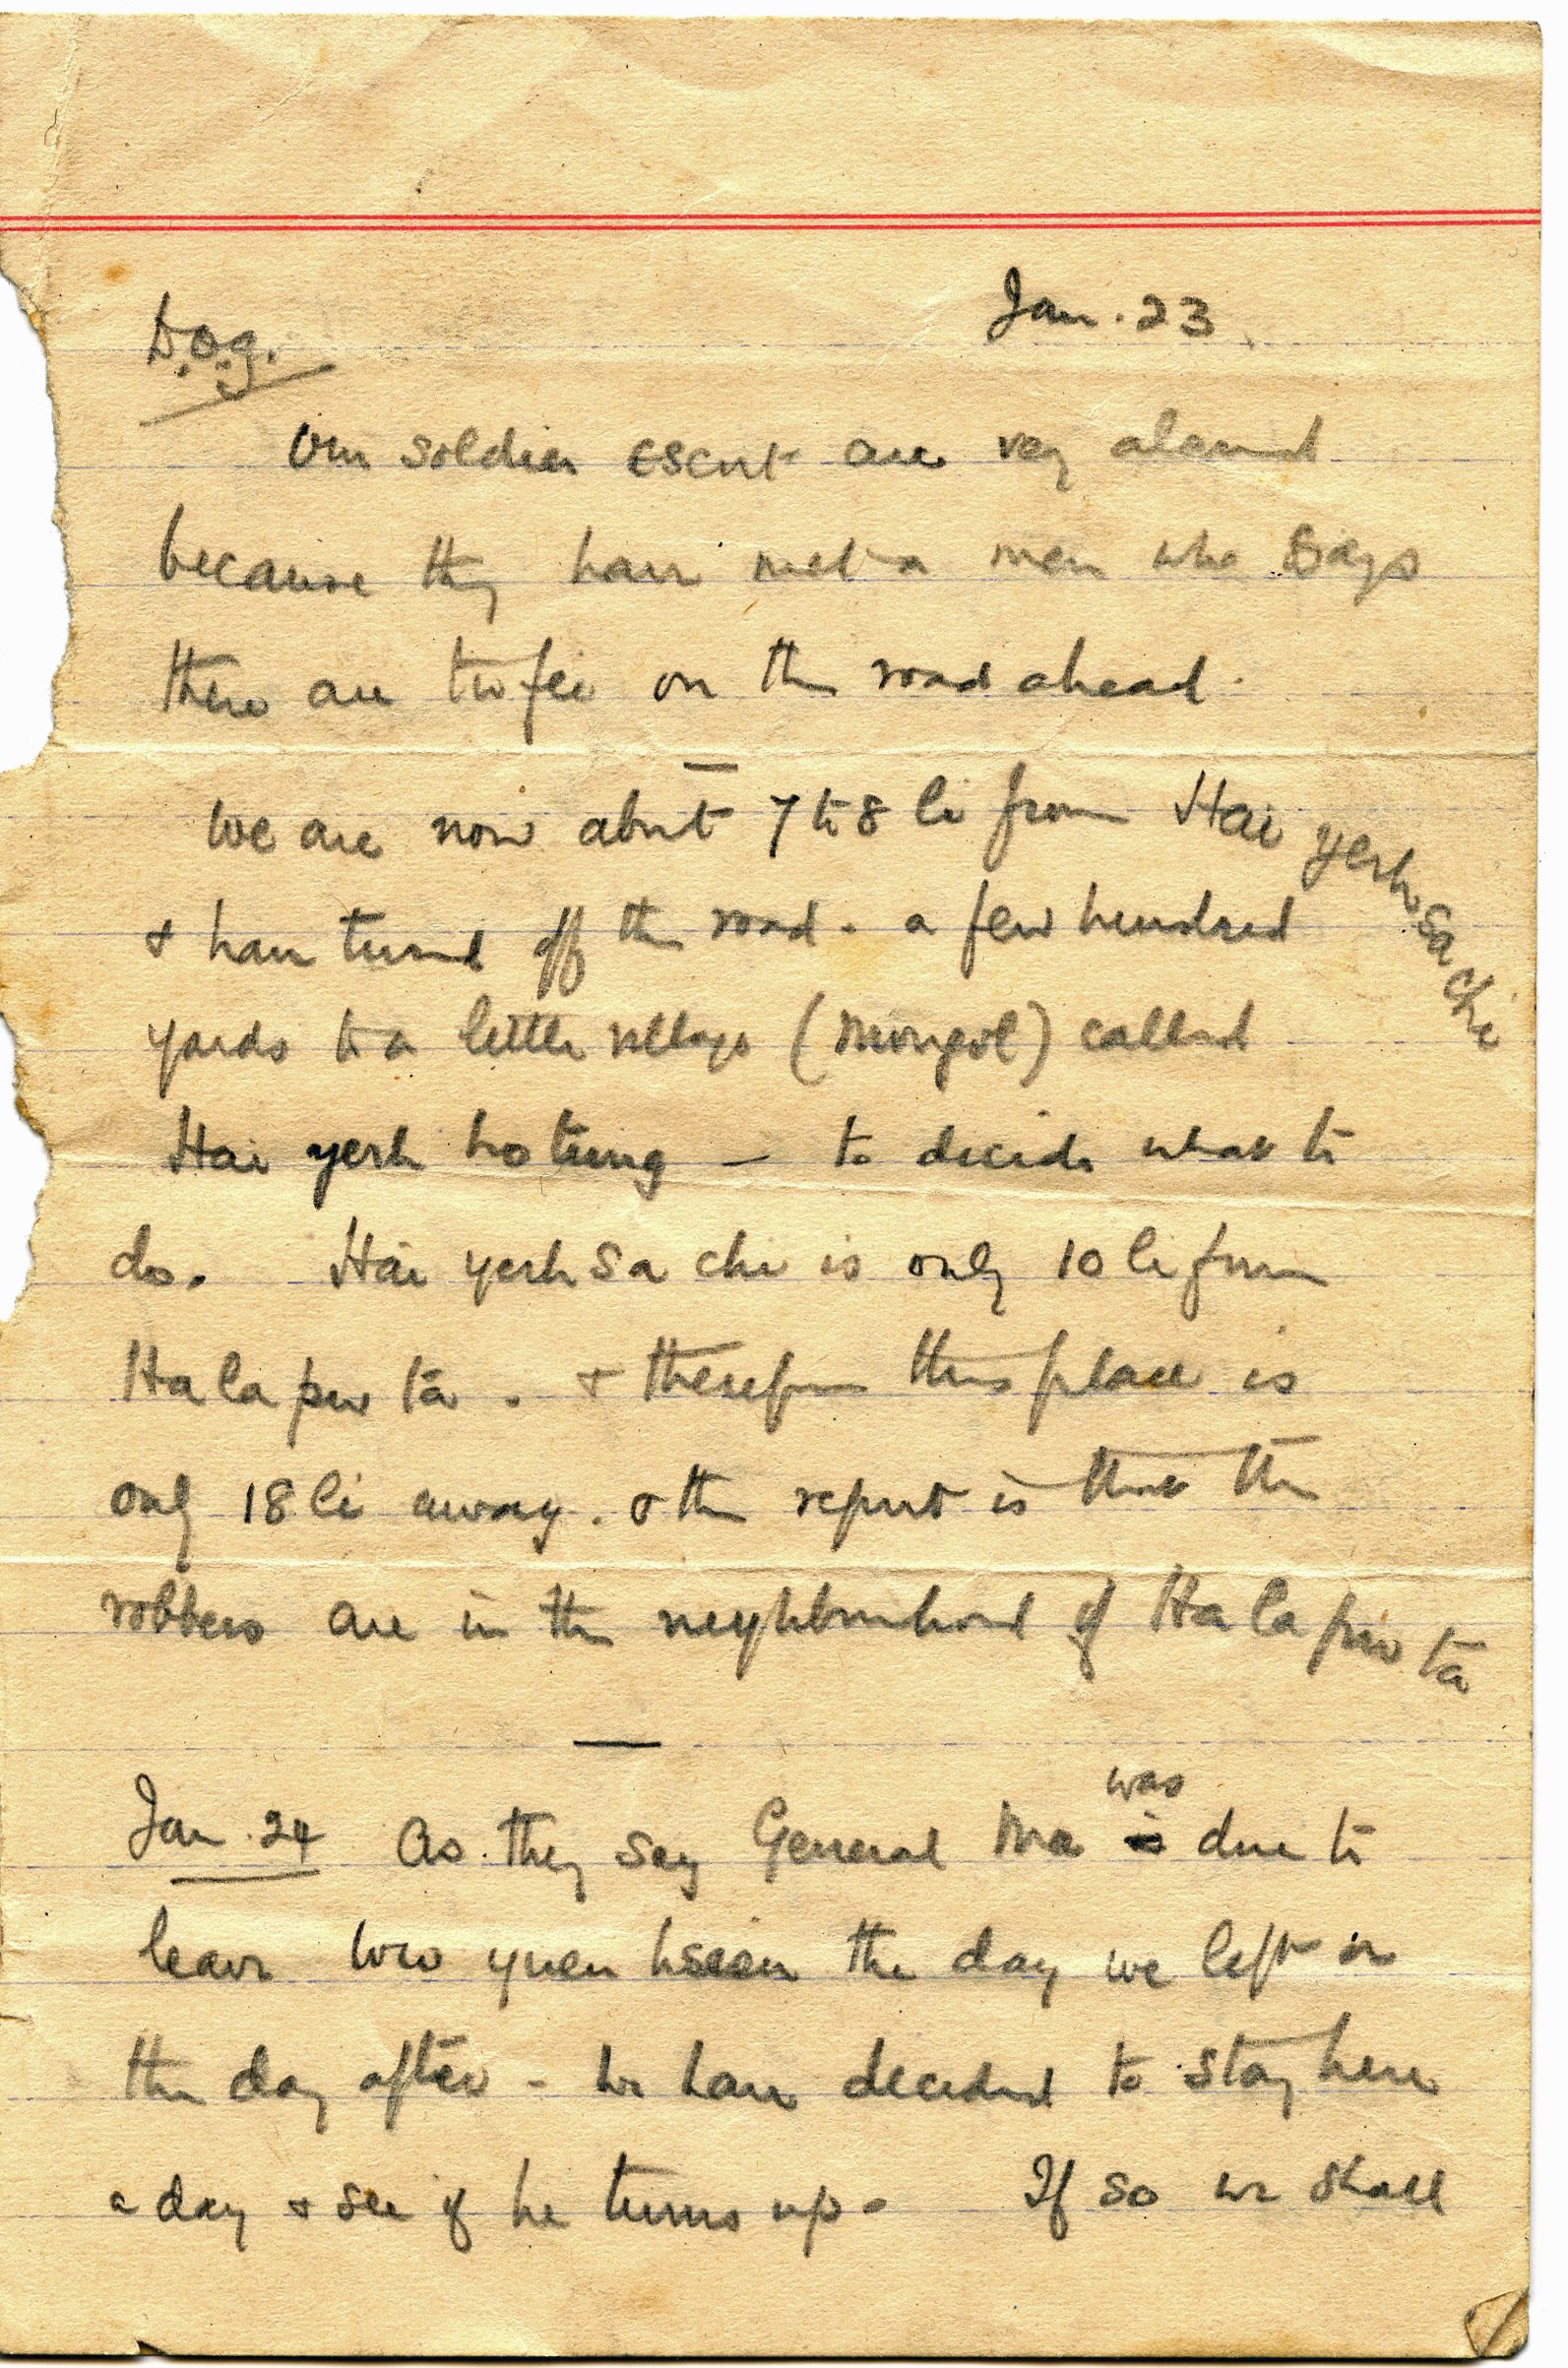 Jan. 23.
Dog.
Our soldier escort are very alarmed
because they have met a man who says
there are tu fei on the road ahead.
We are now about 7 to 8 li from Hai yerh Sa chi
& have turned off the road. a few hundred
yards to a little village (Mongol) called
Hai yerh ho tung – to decide what to
do. Hai yerh Sa chi is only 10 li from
Ha la pu ta. & therefore this place is
only 18 li away. & the report is that the
robbers are in the neighbourhood of Ha la
Jan. 24 As they say General Ma was due to
leave yuen hsien the day we left or
the day after – we have decided to stay here
a day & see if he turns up. If so we shall